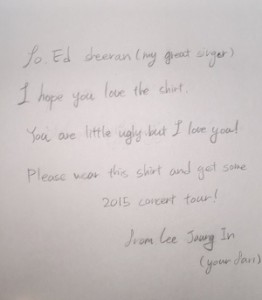 To. Ed sheeran (my great singer)
I hope you love the shirt.
You are little ugly. but I love you!
Please wear this shirt and get some
2015 concert tour!
from Lee Joung In
(your fan)